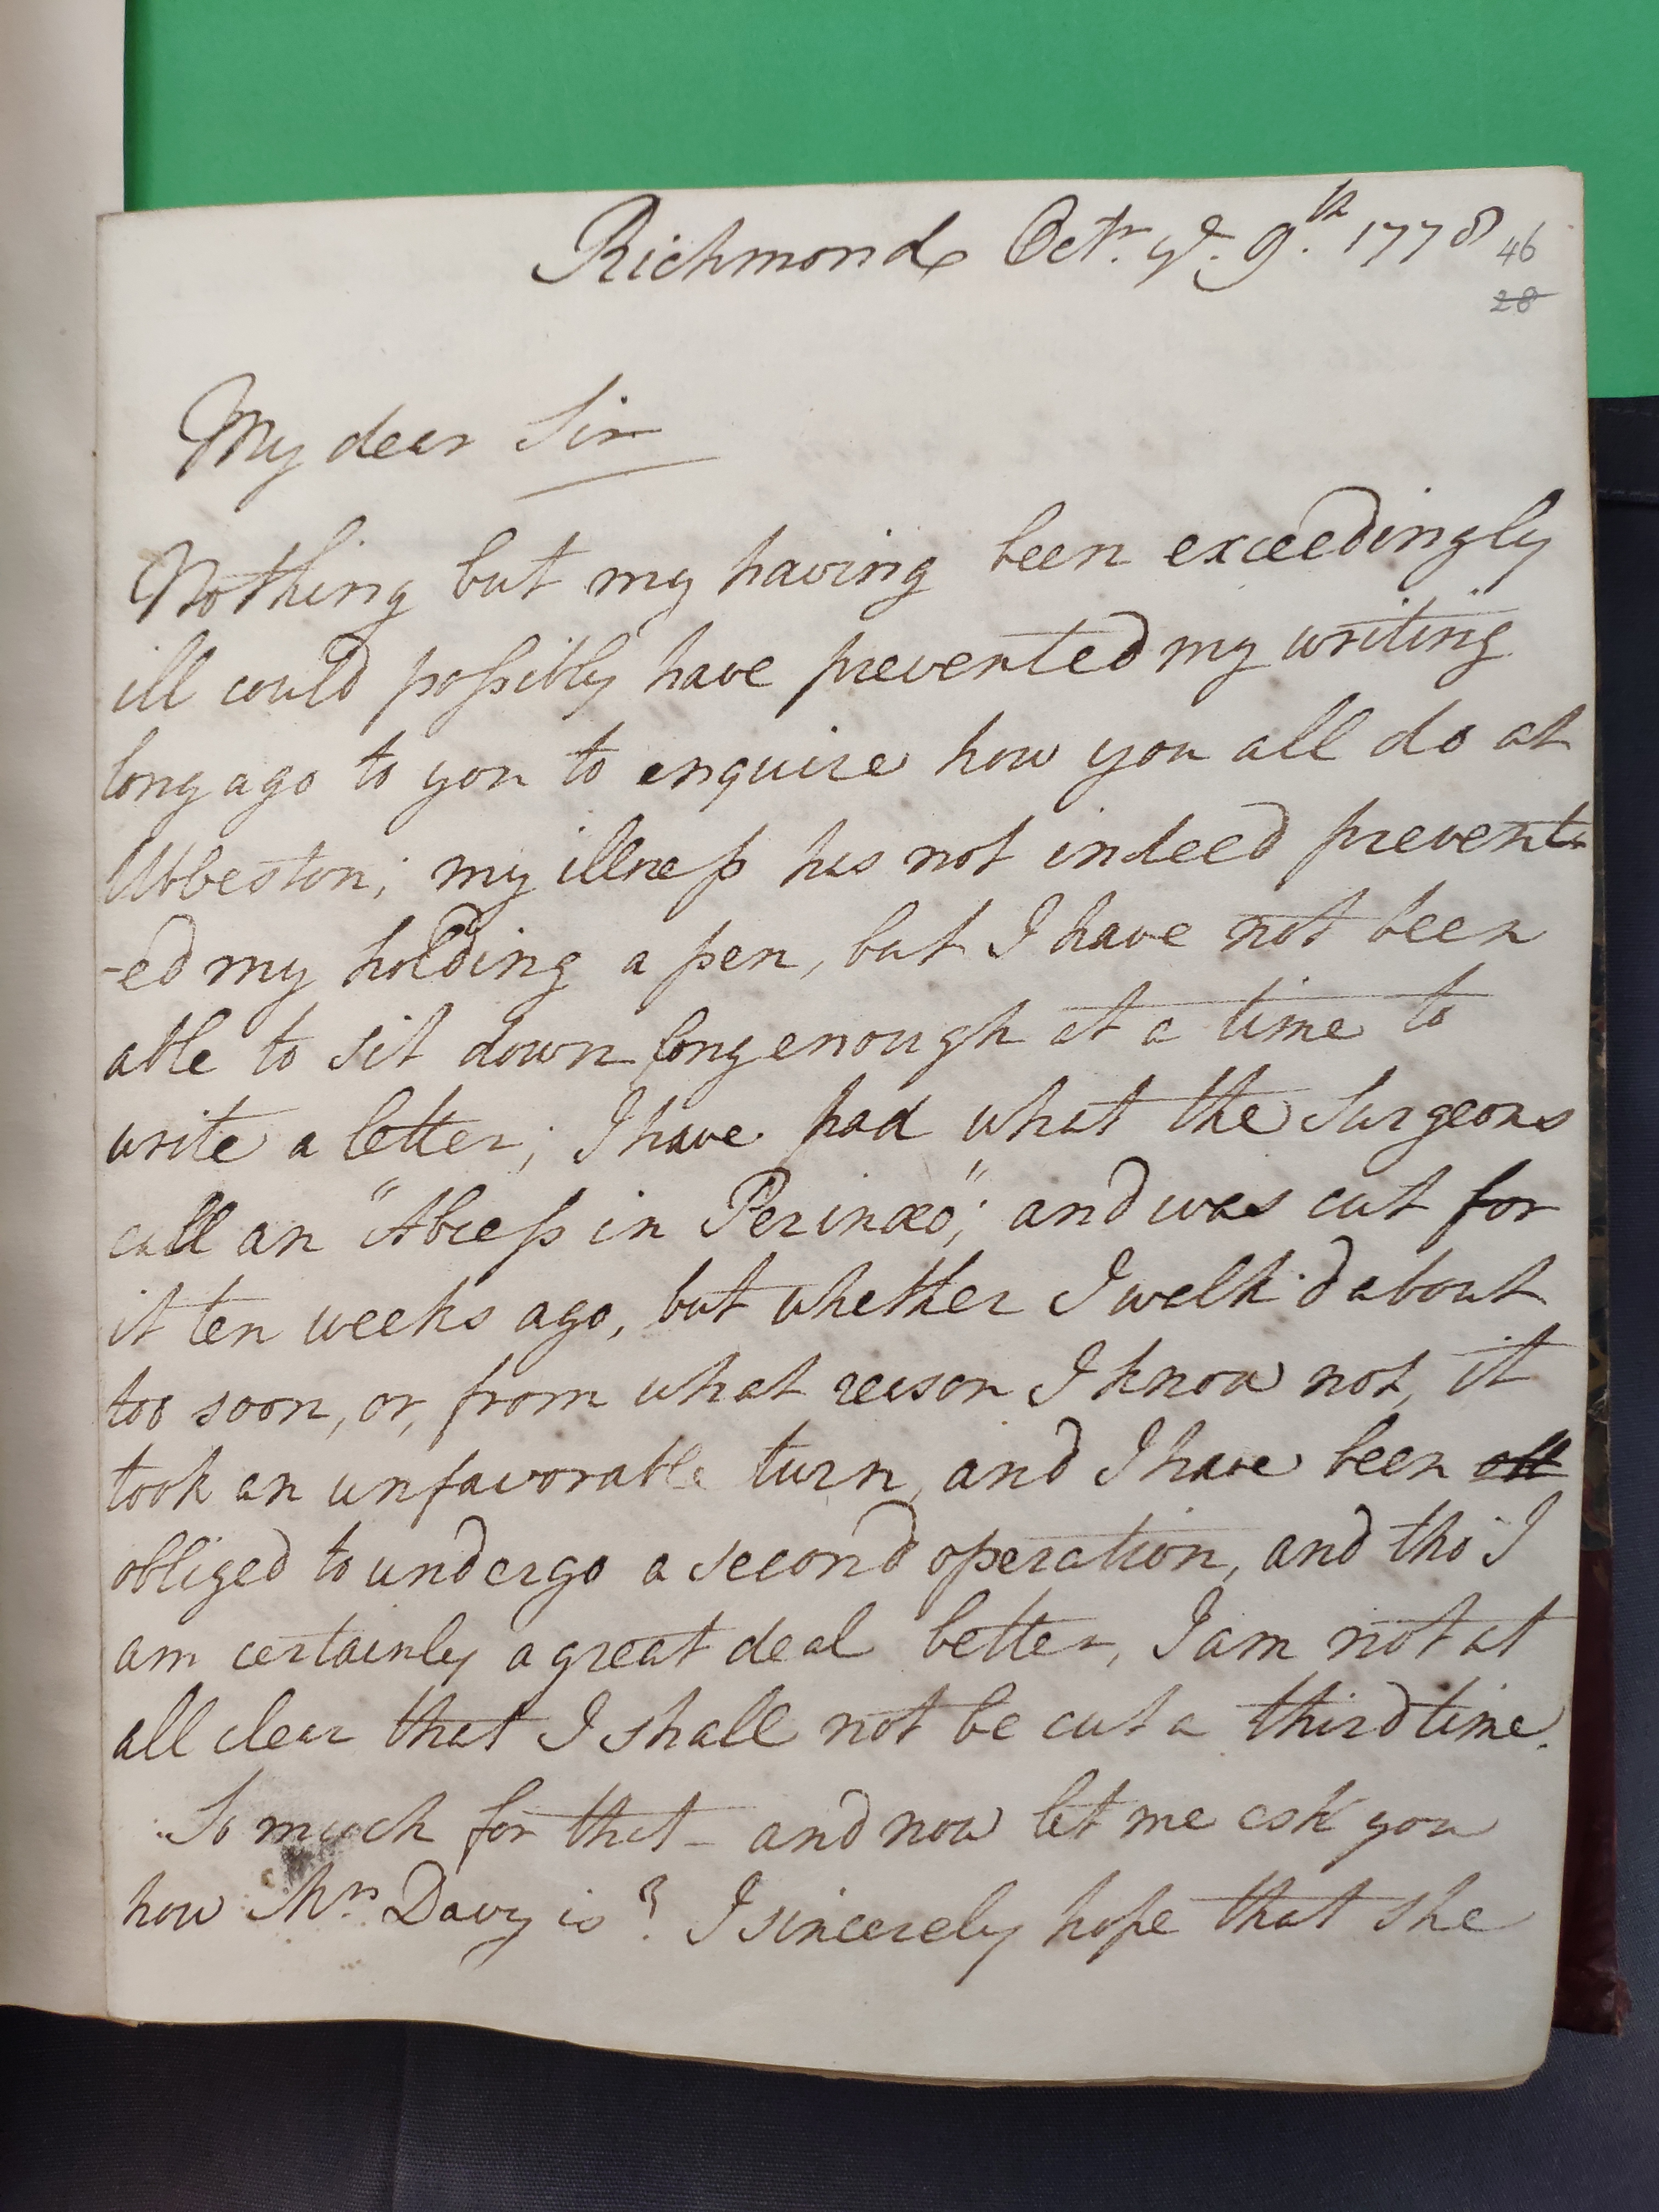 Richmond Octr. ye. 9th. 1778
46
28
My dear Sir
Nothing but my having been exceedingly
ill could possibly have prevented my writing
long ago to you to enquire how you all do at
Ubbeston; my illness has not indeed prevent-
-ed my holding a pen, but I have not been
able to sit down long enough at a time to
write a letter; I have had what the Surgeons
call an "Abcess in Perinæo"; and was cut for
it ten weeks ago, but whether I walk'd about
too soon, or, from what reason I know not, it
took an unfavorable turn, and I have been
obliged to undergo a second operation, and tho' I
am certainly a great deal better, I am not at
all clear that I shall not be cut a third time.
So much for that - and now let me ask you
how Mrs. Davy is? I sincerely hope that she